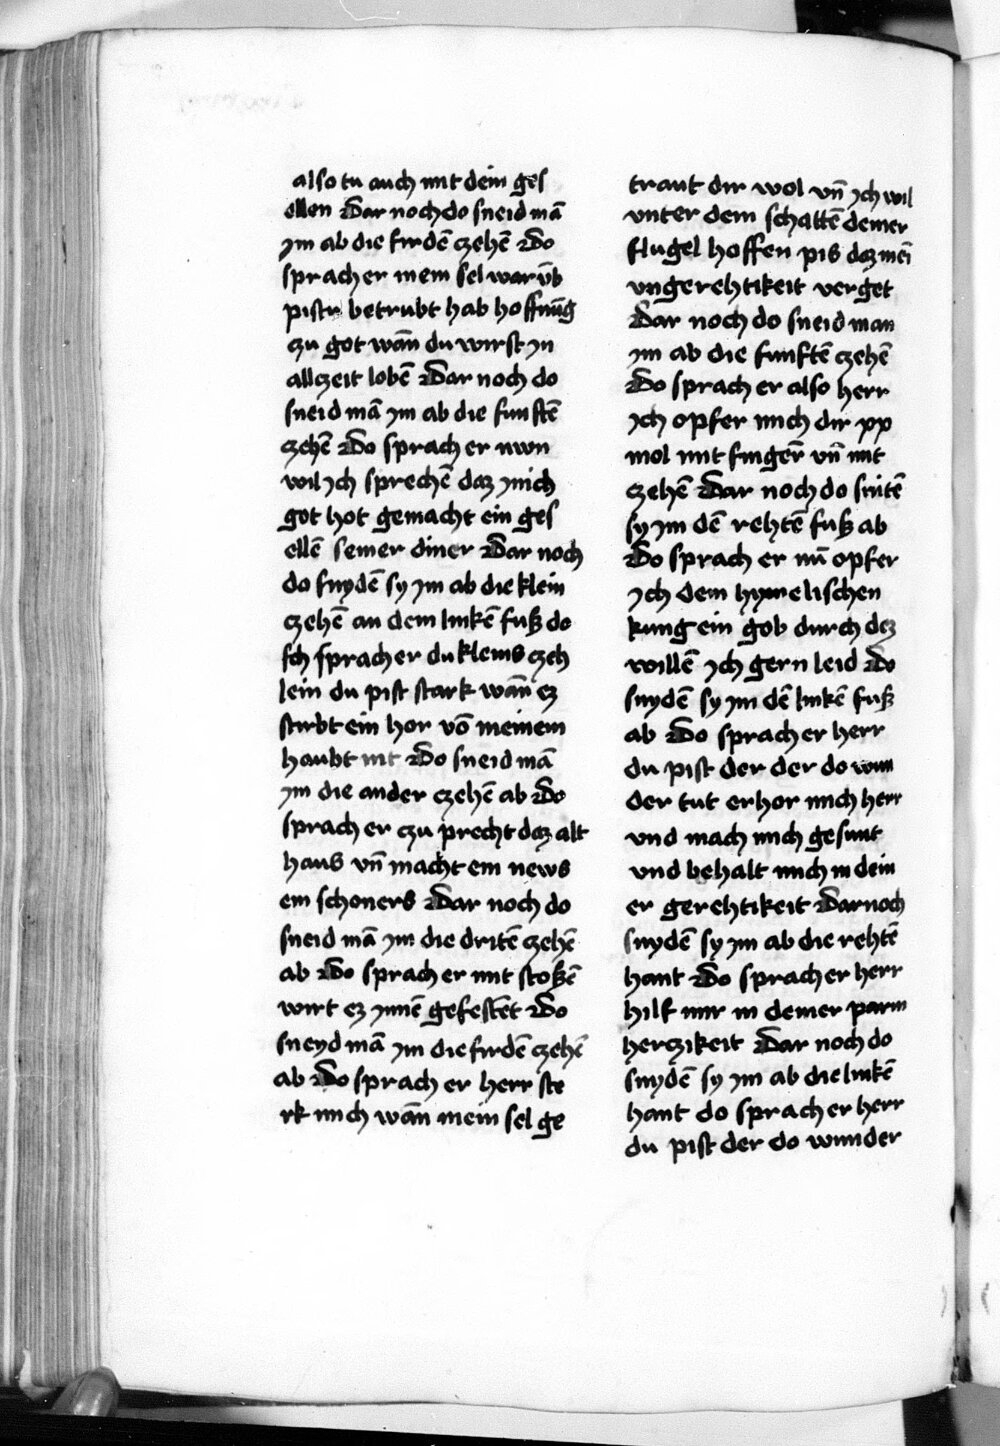 also tu auch mit dein ges
ellen Dar noch do sneid mā
ym ab die firdē czehē Do
sprach er mein sel war ūb
pistu betrubt hab hoffnūg
czu got wān du wirst yn
allczeit lobē Dar noch do
sneid mā ym ab die funftē
czehē Do sprach er nwn
wil ych sprechē daz mich
got hot gemacht ein ges
ellē seiner diner Dar noch
do snydē sy ym ab die klein
czehē an dem linkē fuß do
sprach er du kleins czeh
lein du pist stark wān ez
stirbt ein hor vō meinem
haubt nit Do sneid mā
ym die ander czehē ab Do
sprach er czu precht daz alt
haus vn̄ macht ein news
ein schoners Dar noch do
sneid mā ym die dritē czehē
ab Do sprach er mit stoßē
wirt ez ynnē gefestet Do
sneyd mā ym die firdē czehē
ab Do sprach er herr ste
rk mich wān mein sel ge
traut dir wol vn̄ ych wil
vnter dem schattē deiner
flugel hoffen pis daz mei
vngerehtikeit verget
Dar noch do sneid man
ym ab die funftē czehē
Do sprach er also herr
ych opfer mich dir xx
mol mit fingern vn̄ mit
czehē Dar noch do snitē
sy ym dē rehtē fuß ab
Do sprach er nū opfer
ych dem hymelischen
kung ein gob durch dez
willē ych gern leid Do
snydē sy ym dē linkē fuß
ab Do sprach er herr
du pist der der do wun
der tut erhor mich herr
vnd mach mich gesunt
vnd behalt mich in dein
er gerehtikeit Dar noch
snydē sy ym ab die rehtē
hant Do sprach er herr
hilf mir in deiner parm
herczikeit Dar noch do
snydē sy ym ab die linkē
hant do sprach er herr
du pist der do wunder